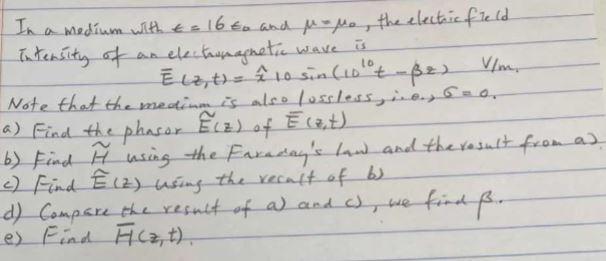 In a medium with ϵ = 16 ϵ₀ and μ = μ₀, the electric field
intensity of an electromagnetic wave is
Ē(z,t) = x̂ 10 sin(10¹⁰t - βz) V/m.
Note that the medium is also lossless, i.e., σ = 0.
a) Find the phasor Ẽ(z) of Ē(z,t)
b) Find H̃ using the Faraday's law and the result from a).
c) Find Ẽ(z) using the result of b)
d) Compare the result of a) and c), we find β.
e) Find H̄(z,t).